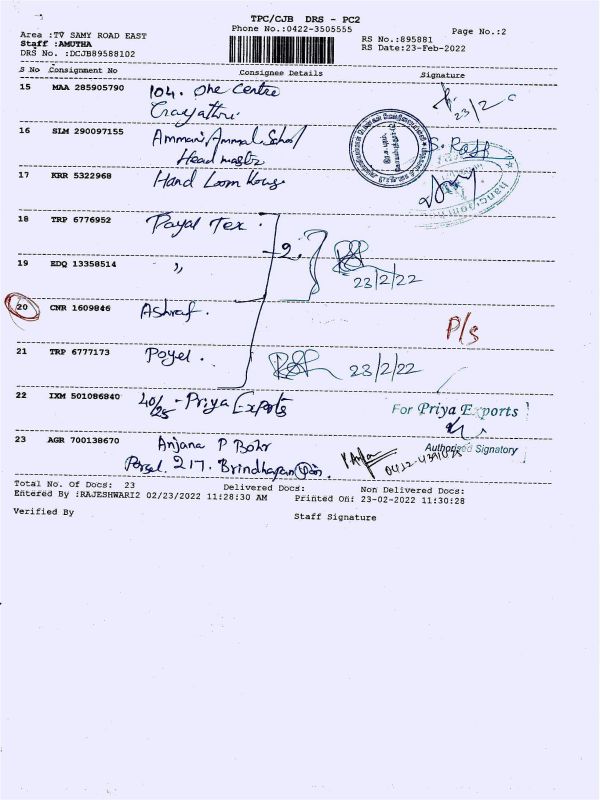 TPC/CJB DRS - PC2
Phone No.:0422-3505555
Page No.:2
Area :TV SAMY ROAD EAST
RS No.:895881
Staff :AMUTHA
RS Date:23-Feb-2022
DRS No. :DCJB89588102
S No Consignment No Consignee Details Signature
15 MAA 285905790 104. One Centre
Gayathri
23/2
16 SLM 290097155 Ammani Ammal School
Head master
17 KRR 5322968 Hand Loom House
18 TRP 6776952 Payal Tex.
2.
19 EDQ 13358514 "
23/2/22
20 CNR 1609846 Ashraf.
P/s
21 TRP 6777173 Poyel.
23/2/22
22 IXM 501086840 40/25 - Priya Exports
For Priya Exports
Authorised Signatory
23 AGR 700138670 Anjana P Bohr
217. Brindhavan
Total No. Of Docs: 23 Delivered Docs: Non Delivered Docs:
Entered By :RAJESHWARI2 02/23/2022 11:28:30 AM Printed On: 23-02-2022 11:30:28
Verified By Staff Signature